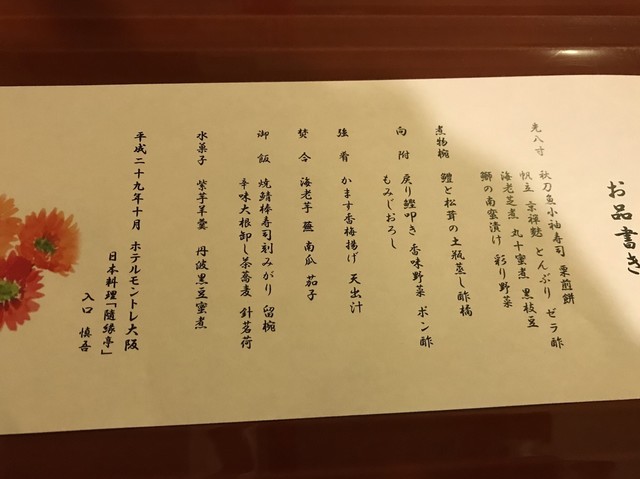 お品書き
先八寸 秋刀魚小袖寿司 栗煎餅
帆立 京禄麩 とんぶり ゼラ酢
海老芝煮 丸十蜜煮 黒枝豆
鰤の南蜜漬け 彩り野菜
煮物椀 鱧と松茸の土瓶蒸し酢橘
向附 戻り鰹叩き 香味野菜 ポン酢
もみじおろし
強肴 かます香梅揚げ 天出汁
焚合 海老芋 蕪 南瓜 茄子
御飯 焼鯖棒寿司刻みがり 留椀
辛味大根卸し茶蕎麦 針茗荷
水菓子 紫芋羊羹 丹波黒豆蜜煮
平成二十九年十月 ホテルモントレ大阪
日本料理「随縁亭」
入口 慎吾